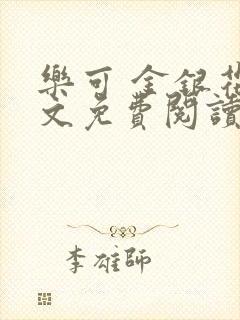 樂可 金銀花
文免費閱讀
李雄師